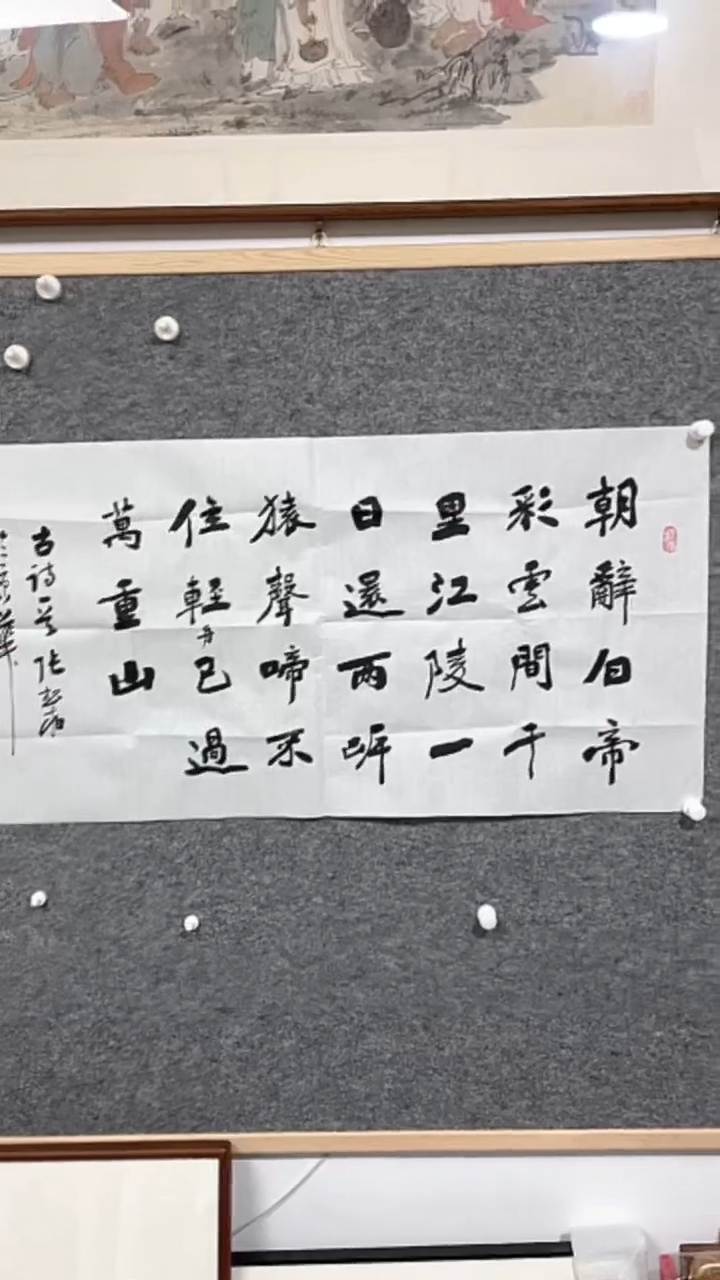 朝辭白帝
彩雲間千
里江陵一
日還兩岸
猿聲啼不
住輕舟已過
萬重山
古詩一首 張